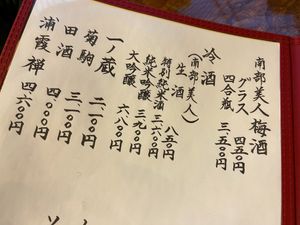 南部美人 梅酒
グラス 四五〇円
四合瓶 三、五〇〇円
冷酒
(南部美人)
生酒 八五〇円
特別純米酒 三、六〇〇円
純米吟醸 三、九〇〇円
大吟醸 六、八〇〇円
一ノ蔵 二、一〇〇円
菊駒 三、二〇〇円
田酒 四、一〇〇円
浦霞 禅 四、六〇〇円